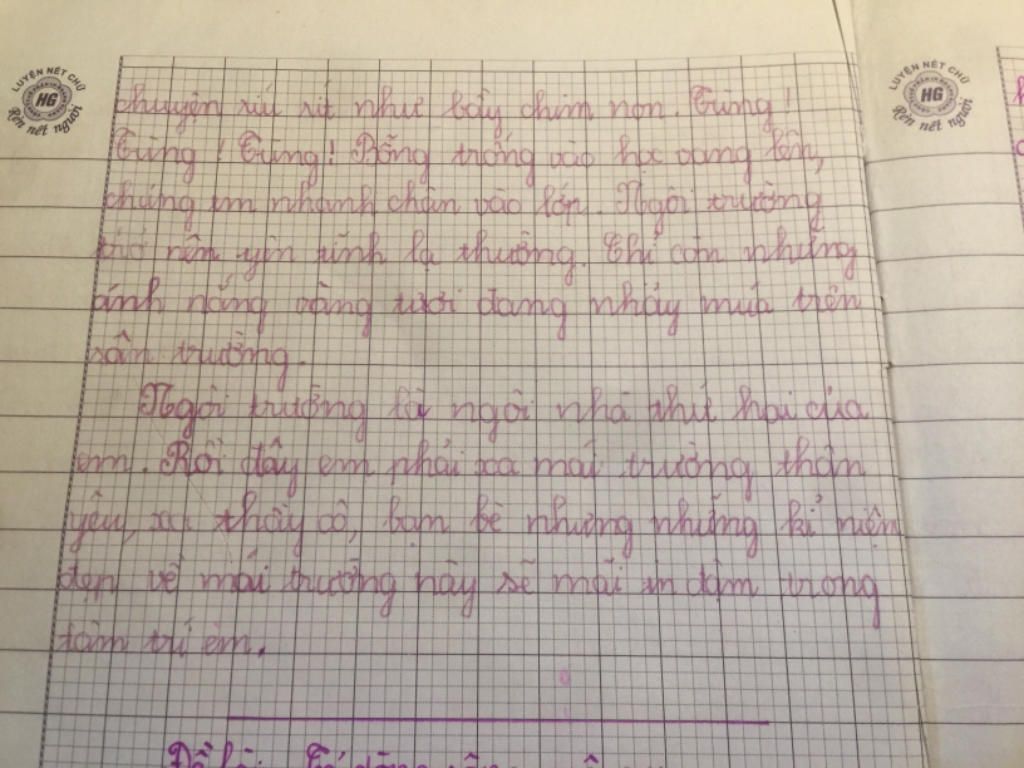 LUYỆN NÉT CHỮ
HG
Rèn nết người
LUYỆN NÉT CHỮ
HG
Rèn nết người
chuyện ríu rít như bầy chim non. Tùng!
Tùng! Tùng! Trống vào học vang lên,
chúng em nhanh chân vào lớp. Ngôi trường
trở nên yên tĩnh lạ thường. Chỉ còn những
ánh nắng vàng tươi đang nhảy múa trên
sân trường.
Ngôi trường là ngôi nhà thứ hai của
em. Rồi đây em phải xa mái trường thân
yêu, xa thầy cô, bạn bè nhưng những kỉ niệm
đẹp về mái trường này sẽ mãi in đậm trong
tâm trí em.
Đề bài: